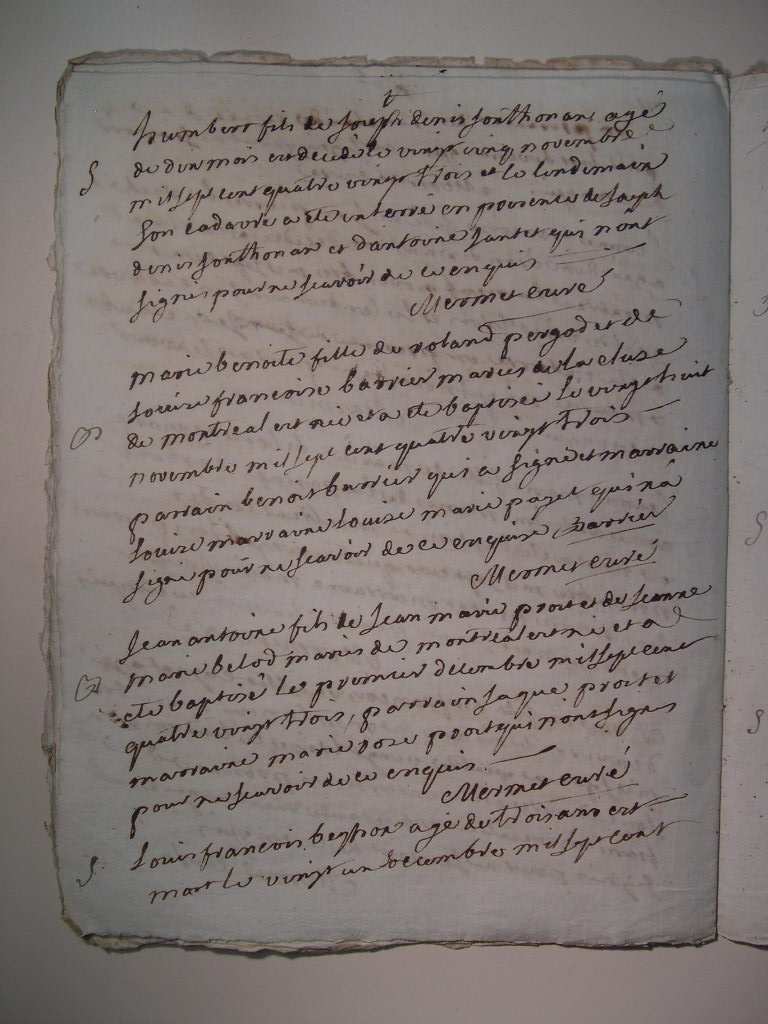 humbert fils de Joseph denis sonthonax agé
de d'un mois est decedé le vingt cinq novembre
mil sept cent quatre vingt trois et le lendemain
son cadavre a eté enterré en presence de Joseph
denis sonthonax et d'antoine jantet qui n'ont
signés pour ne scavoir de ce enquis
Mermet curé
marie benoite fille de roland pergod et de
louise francoise barrier mariés de la cluse
de montreal est née et a eté baptiseé le vingt huit
novembre mil sept cent quatre vingt trois
parrain benoit barrier qui a signé et marraine
louise marraine louise marie paget qui n'a
signé pour ne scavoir de ce enquise Barrier
Mermet curé
Jean antoine fils de Jean marie proit et de Jeanne
marie belod mariés de montreal est né et a
eté baptisé le premier decembre mil sept cent
quatre vingt trois, parrain Jaque proit et
marraine marie rose proit qui n'ont signés
pour ne scavoir de ce enquis
Mermet curé
Louis francois agé de trois ans est
mort le vingt un decembre mil sept cent